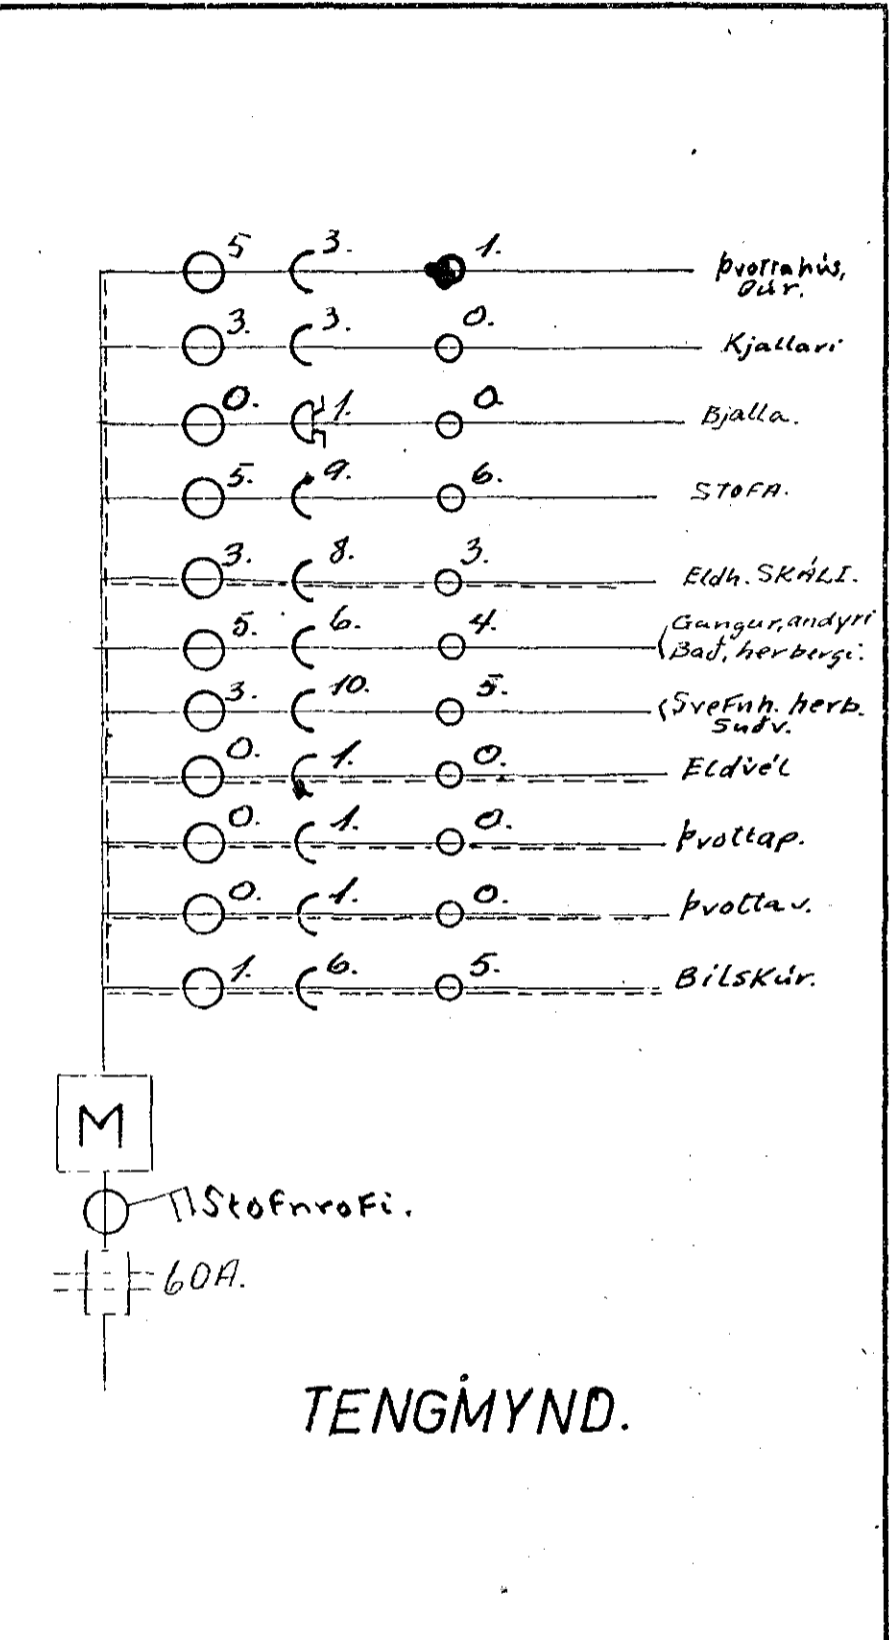 5 3. 1. Þvottahús,
búr.
3. 3. 0. Kjallari
0. 1. 0. Bjalla.
5. 9. 6. STOFA.
3. 8. 3. Eldh. SKÁLI.
5. 6. 4. Gangur, andyri
Bað, herbergi.
3. 10. 5. Svefnh. herb.
Suðv.
0. 1. 0. Eldvél
0. 1. 0. Þvottap.
0. 1. 0. Þvottav.
1. 6. 5. Bílskúr.
M
Stofnrofi.
60A.
TENGMYND.